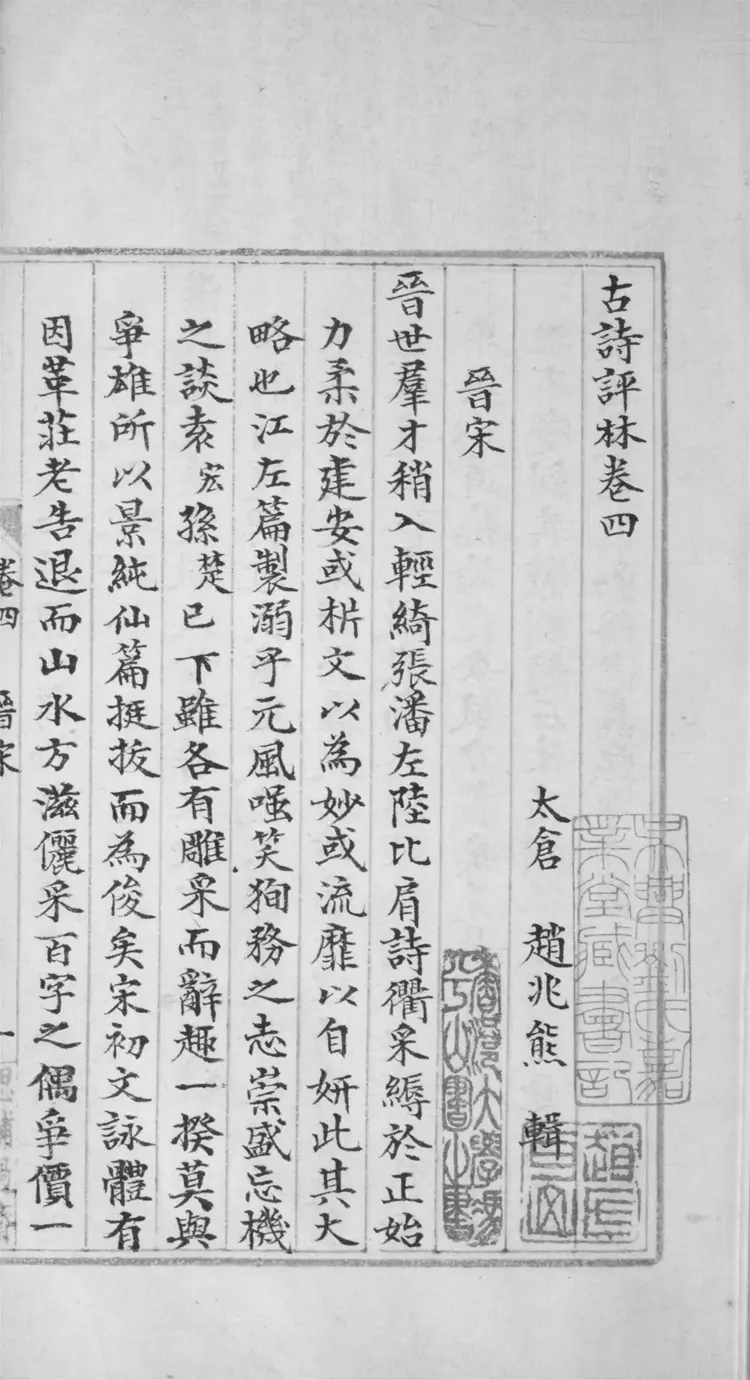 古詩評林卷四
太倉 趙兆熊 輯
晉宋
晉世羣才稍入輕綺張潘左陸比肩詩衢采縟於正始
力柔於建安或析文以為妙或流靡以自妍此其大
略也江左篇製溺乎元風嗤笑狥務之志崇盛忘機
之談袁宏孫楚已下雖各有雕采而辭趣一揆莫與
爭雄所以景純仙篇挺拔而為俊矣宋初文詠體有
因革莊老告退而山水方滋儷采百字之偶爭價一
卷四 晉宋 一
吳興劉氏嘉
業堂藏書記